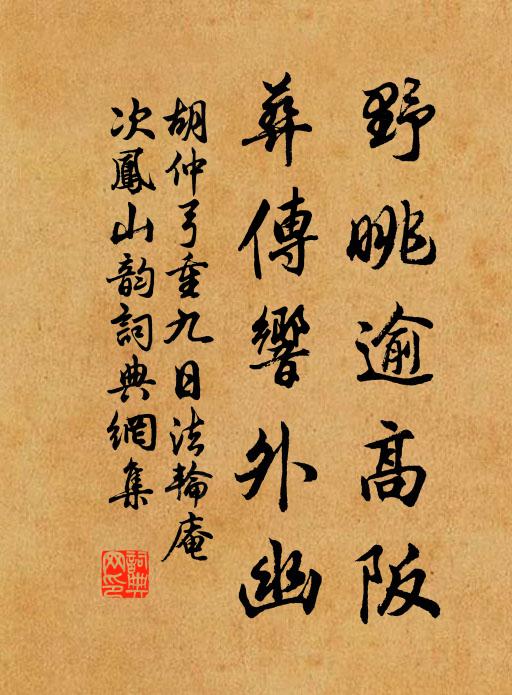 野眺逾高阪
葬傳響外幽
胡仲弓重九日法輪庵
次鳳山韵詞典網集
詞典
网印